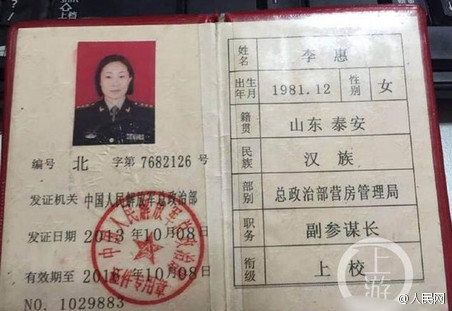 编号 北 字第7682126号
发证机关 中国人民解放军总政治部
发证日期 2013年10月08日
有效期至 10月08日
NO. 1029883
姓名 李惠
出生年月 1981.12 性别 女
籍贯 山东 泰安
民族 汉族
部别 总政治部营房管理局
职务 副参谋长
衔级 上校
上游
@人民网